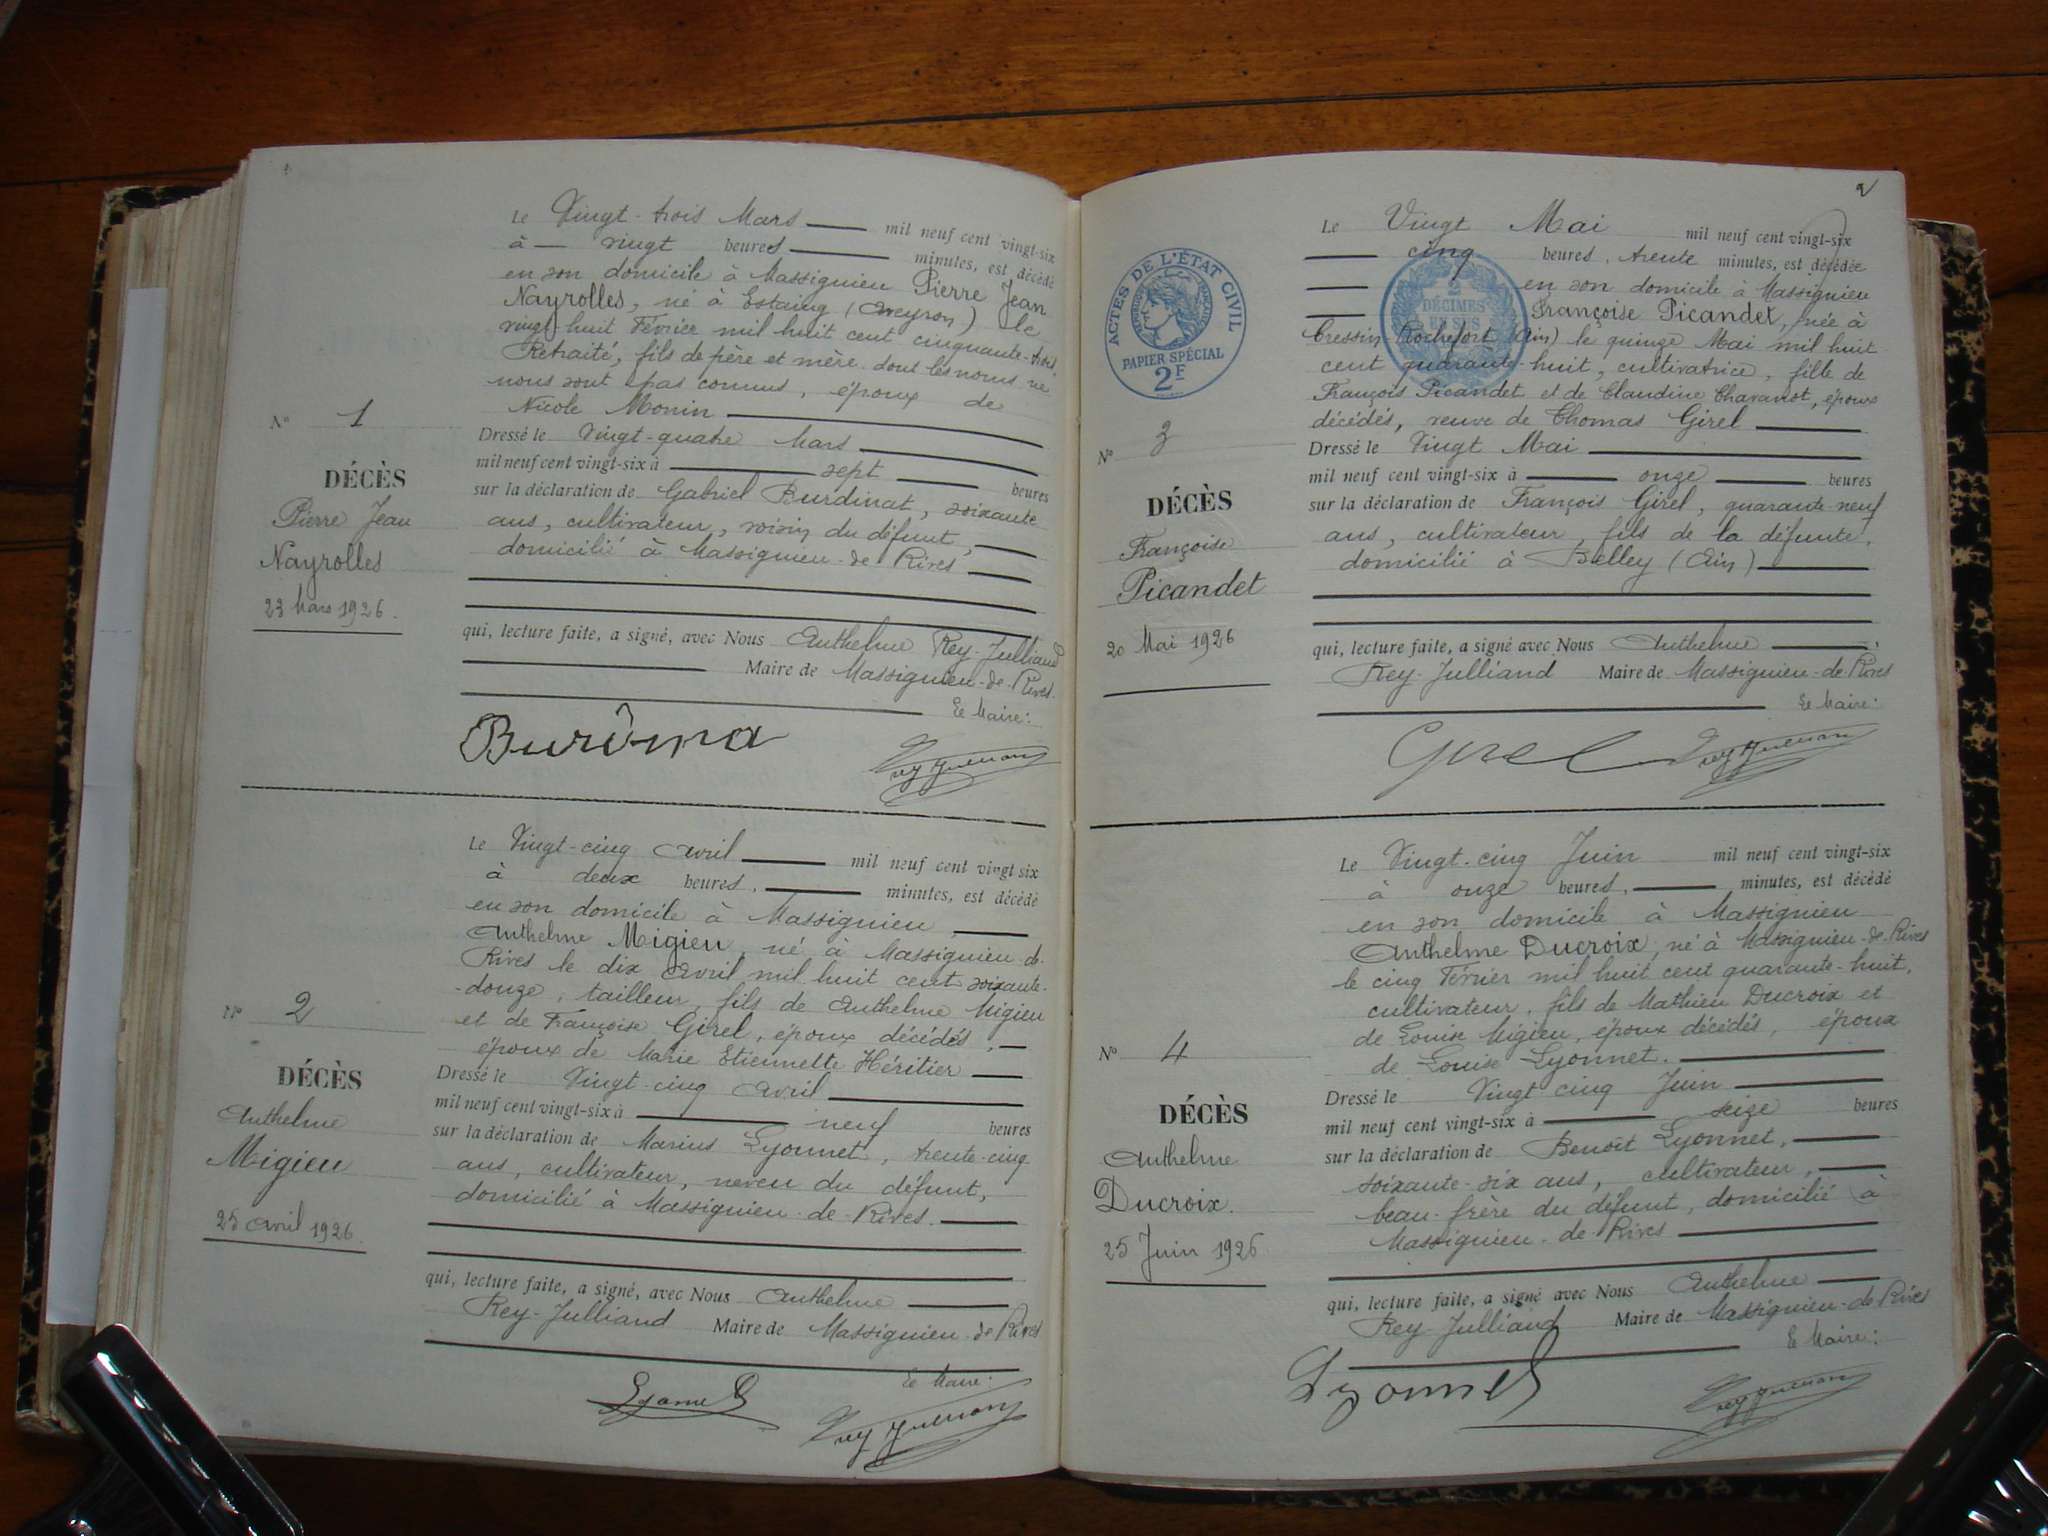 Le Vingt-trois Mars mil neuf cent vingt-six
à vingt heures minutes, est décédé
en son domicile à Massignieu Pierre Jean
Nayrolles, né à Estaing (Aveyron) le
vingt-huit Février mil huit cent cinquante-trois,
Retraité, fils de père et mère dont les noms ne
nous sont pas connus, époux de
Nicole Monin
Dressé le Vingt-quatre Mars
mil neuf cent vingt-six à sept heures
sur la déclaration de Gabriel Burdinat, soixante
ans, cultivateur, voisin du défunt,
domicilié à Massignieu-de-Rives
qui, lecture faite, a signé, avec Nous Anthelme Rey-Julliand
Maire de Massignieu-de-Rives.
Le Maire:
N° 1
DÉCÈS
Pierre Jean
Nayrolles
23 Mars 1926.
Le Vingt-cinq Avril mil neuf cent vingt six
à deux heures, minutes, est décédé
en son domicile à Massignieu
Anthelme Migieu, né à Massignieu-de-
Rives le dix Avril mil huit cent soixante-
-douze, tailleur, fils de Anthelme Migieu
et de Françoise Girel, époux décédés,
époux de Marie Etiennette Héritier
Dressé le Vingt-cinq Avril
mil neuf cent vingt-six à neuf heures
sur la déclaration de Marius Lyonnet, trente-cinq
ans, cultivateur, neveu du défunt,
domicilié à Massignieu-de-Rives.
qui, lecture faite, a signé, avec Nous Anthelme
Rey-Julliand Maire de Massignieu-de Rives
Le Maire:
Lyonnet
N° 2
DÉCÈS
Anthelme
Migieu
25 Avril 1926
2
ACTES DE L'ÉTAT CIVIL
PAPIER SPÉCIAL
2F
2
DÉCIMES
EN SUS
Le Vingt Mai mil neuf cent vingt-six
cinq heures, trente minutes, est décédée
en son domicile à Massignieu
Françoise Picandet, née à
Cressin-Rochefort (Ain) le quinze Mai mil huit
cent quarante-huit, cultivatrice, fille de
François Picandet et de Claudine Chavanot, époux
décédés, veuve de Thomas Girel
Dressé le Vingt Mai
mil neuf cent vingt-six à onze heures
sur la déclaration de François Girel, quarante-neuf
ans, cultivateur, fils de la défunte,
domicilié à Belley (Ain)
qui, lecture faite, a signé avec Nous Anthelme
Rey-Julliand Maire de Massignieu-de-Rives
Le Maire:
Girel
N° 3
DÉCÈS
Françoise
Picandet
20 Mai 1926
Le Vingt-cinq Juin mil neuf cent vingt-six
à onze heures, minutes, est décédé
en son domicile à Massignieu
Anthelme Ducroix, né à Massignieu-de-Rives
le cinq Février mil huit cent quarante-huit,
cultivateur, fils de Mathieu Ducroix et
de Louise Migieu, époux décédés, époux
de Louise Lyonnet.
Dressé le Vingt cinq Juin
mil neuf cent vingt-six à seize heures
sur la déclaration de Benoît Lyonnet,
soixante-six ans, cultivateur,
beau-frère du défunt, domicilié à
Massignieu-de-Rives
qui, lecture faite, a signé avec Nous Anthelme
Rey-Julliand Maire de Massignieu-de Rives
Le Maire:
Lyonnet
N° 4
DÉCÈS
Anthelme
Ducroix.
25 Juin 1926